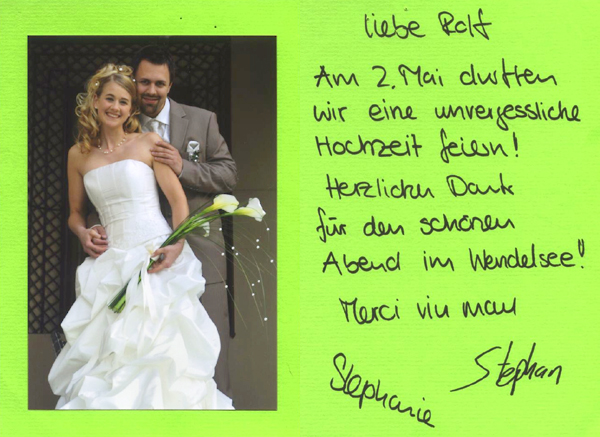 liebe Rolf
Am 2. Mai durften
wir eine unvergessliche
Hochzeit feiern!
Herzlichen Dank
für den schönen
Abend im Wendelsee!
Merci viu mau
Stephanie
Stephan